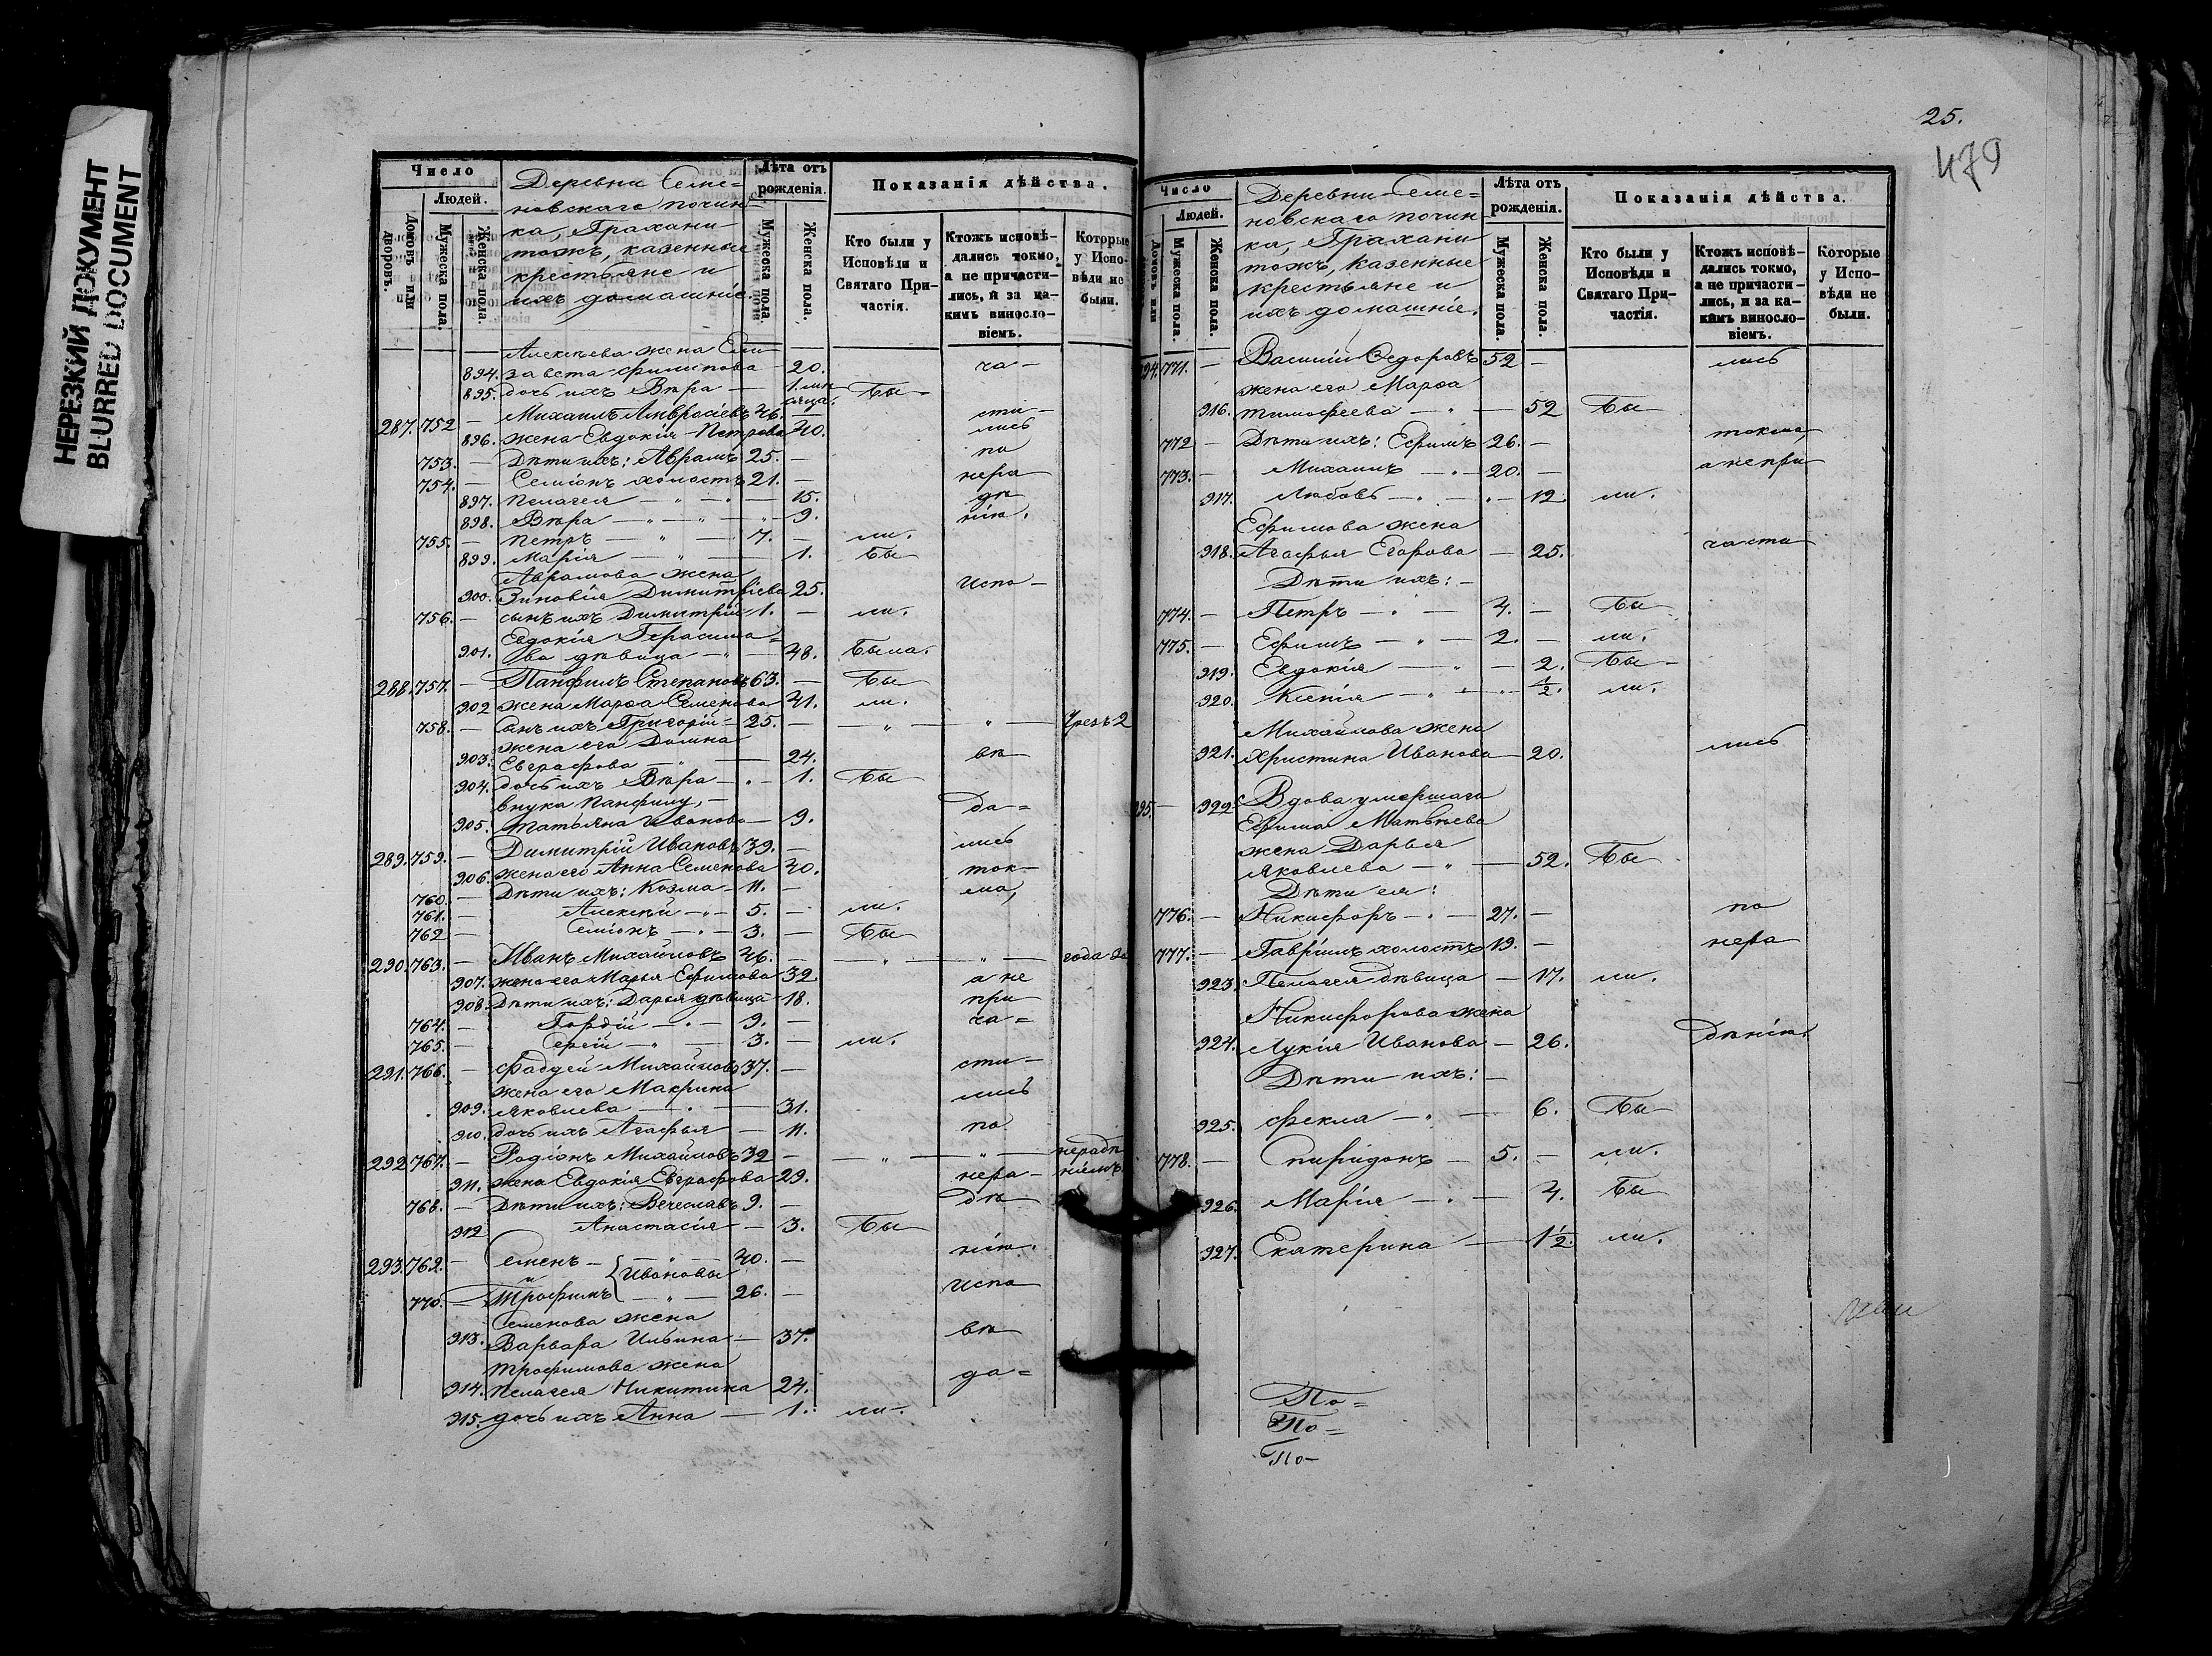 НЕРЕЗКИЙ ДОКУМЕНТ
BLURRED DOCUMENT
Число
Людей.
Домовъ или дворовъ.
Мужеска пола.
Женска пола.
Деревни Семе=
новскаго почин-
ка, Грахани
тожъ, казенные
крестьяне и
ихъ домашніе
Лѣта отъ рожденія.
Мужеска пола.
Женска пола.
Показанія дѣйства.
Кто были у Исповѣди и Святаго Причастія.
Ктожъ исповѣдались токмо, а не причастились, и за какимъ винословіемъ.
Которые у Исповѣди не были.
Алексѣева жена Ели
894. завета Филипова 20. ча-
895. дочь ихъ Вѣра — 1. Бы-
287. 752 — Михаилъ Амвросіевъ 46. — сти-
896. жена Евдокія Петрова 40. лись
753. — Дѣти ихъ: Аврамъ 25. — по
754. — Семіонъ холостъ 21. — нера
897. Пелагея — " — 15. дѣ
898. Вѣра — " — " — 9. нію.
755. — Петръ — " — 7. — ли.
899. Марія — " — 1. Бы
Аврамова жена
900. Зиновія Димитріева 25. Испо-
756. — сынъ ихъ Димитрій 1. — ли.
Евдокія Герасимо=
901. ва дѣвица — " — 48. Была.
288. 757. — Панфилъ Степановъ 63. — Бы
902 жена Марѳа Семенова 41. ли.
758. — Сынъ ихъ Григорій — 25. — — " — " — Чрезъ 2
жена его Домна
903. Евграфова — " — 24. вѣ
904. дочь ихъ Вѣра — " — 1. Бы
внука Панфилу, —
905. Татьяна Иванова — 9. да=
289. 759. — Димитрій Ивановъ 39. — лись
906. жена его Анна Семенова 40. ток-
760. — Дѣти ихъ: Козма — 11. — мо,
761. — Алексѣй — " — 5. — ли.
762 — Семіонъ — " — 3. — Бы
290. 763. — Иванъ Михайловъ 46. — — " — " — года по
907. жена его Марья Ефимова 32 а не
908. Дѣти ихъ: Дарья дѣвица 18. при
764. — Гордій — " — 9. — ча=
765. — Сергій — " — 3. — ли.
291. 766. — Фаддей Михайловъ 37. — сти-
жена его Макрина
909. Яковлева — " — 31. лись
910. дочь ихъ Агафья — 11. по
292 767. — Родіонъ Михайловъ 32 — — " — " — нерадѣ
911. жена Евдокія Евграфова 29. нера- ніемъ.
768. — Дѣти ихъ: Вячеславъ 9. — дѣ
912 Анастасія — 3. Бы
нію.
293. 769. — Семенъ — " — 40. —
и Ивановы
770. — Трофимъ — " — 26. — Испо
Семенова жена
913. Варвара Ильина — 37. вѣ
Трофимова жена
914. Пелагея Никитина 24. да=
915. дочь ихъ Анна — 1. ли-.
25.
479
Число
Людей.
Домовъ или
Мужеска пола.
Женска пола.
Деревни Семе=
новскаго почин
ка, Грахани
тожъ, Казенные
крестьяне и
ихъ домашніе.
Лѣта отъ рожденія.
Мужеска пола.
Женска пола.
Показанія дѣйства.
Кто были у Исповѣди и Святаго Причастія.
Ктожъ исповѣдались токмо, а не причастились, и за какимъ винословіемъ.
Которые у Исповѣди не были.
94. 771. — Василій Ѳедоровъ 52 — лись
жена его Марѳа
916. Тимофеева — " — 52 Бы-
772 — Дѣти ихъ: Ефимъ 26. — токмо,
773. — Михаилъ — " 20. — а непри
917. Любовь — " — 12. ли.
Ефимова жена
918. Агафья Егорова — 25. части
Дѣти ихъ: —
774. — Петръ — " — 4. — Бы
775. — Ефимъ — " — 2. — ли.
919. Евдокія — " — 2. Бы-
920. Ксенія — " — 1/2. ли.
Михайлова жена
921. Христина Иванова — 20. лись
95. — 922. Вдова умершаго
Ефима Матвѣева
жена Дарья
Яковлева — " — 52. Бы
Дѣти ея:
776. — Никифоръ — " — 27. — по
777. — Гавріилъ холостъ 19. — нера
923. Пелагея дѣвица — 17. ли.
Никифорова жена
924. Лукія Иванова — 26. дѣнію.
Дѣти ихъ: —
925. Фекла — " — 6. Бы-
778. — Спиридонъ — 5. — ли.
926. Марія — " — 4. Бы
927. Екатерина — 1 1/2. ли.
По=
По=
По-